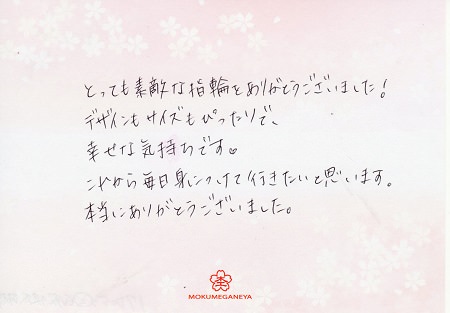 とっても素敵な指輪をありがとうございました!
デザインもサイズもぴったりで、
幸せな気持ちです♥
これから毎日身につけて行きたいと思います。
本当にありがとうございました。
MOKUMEGANEYA